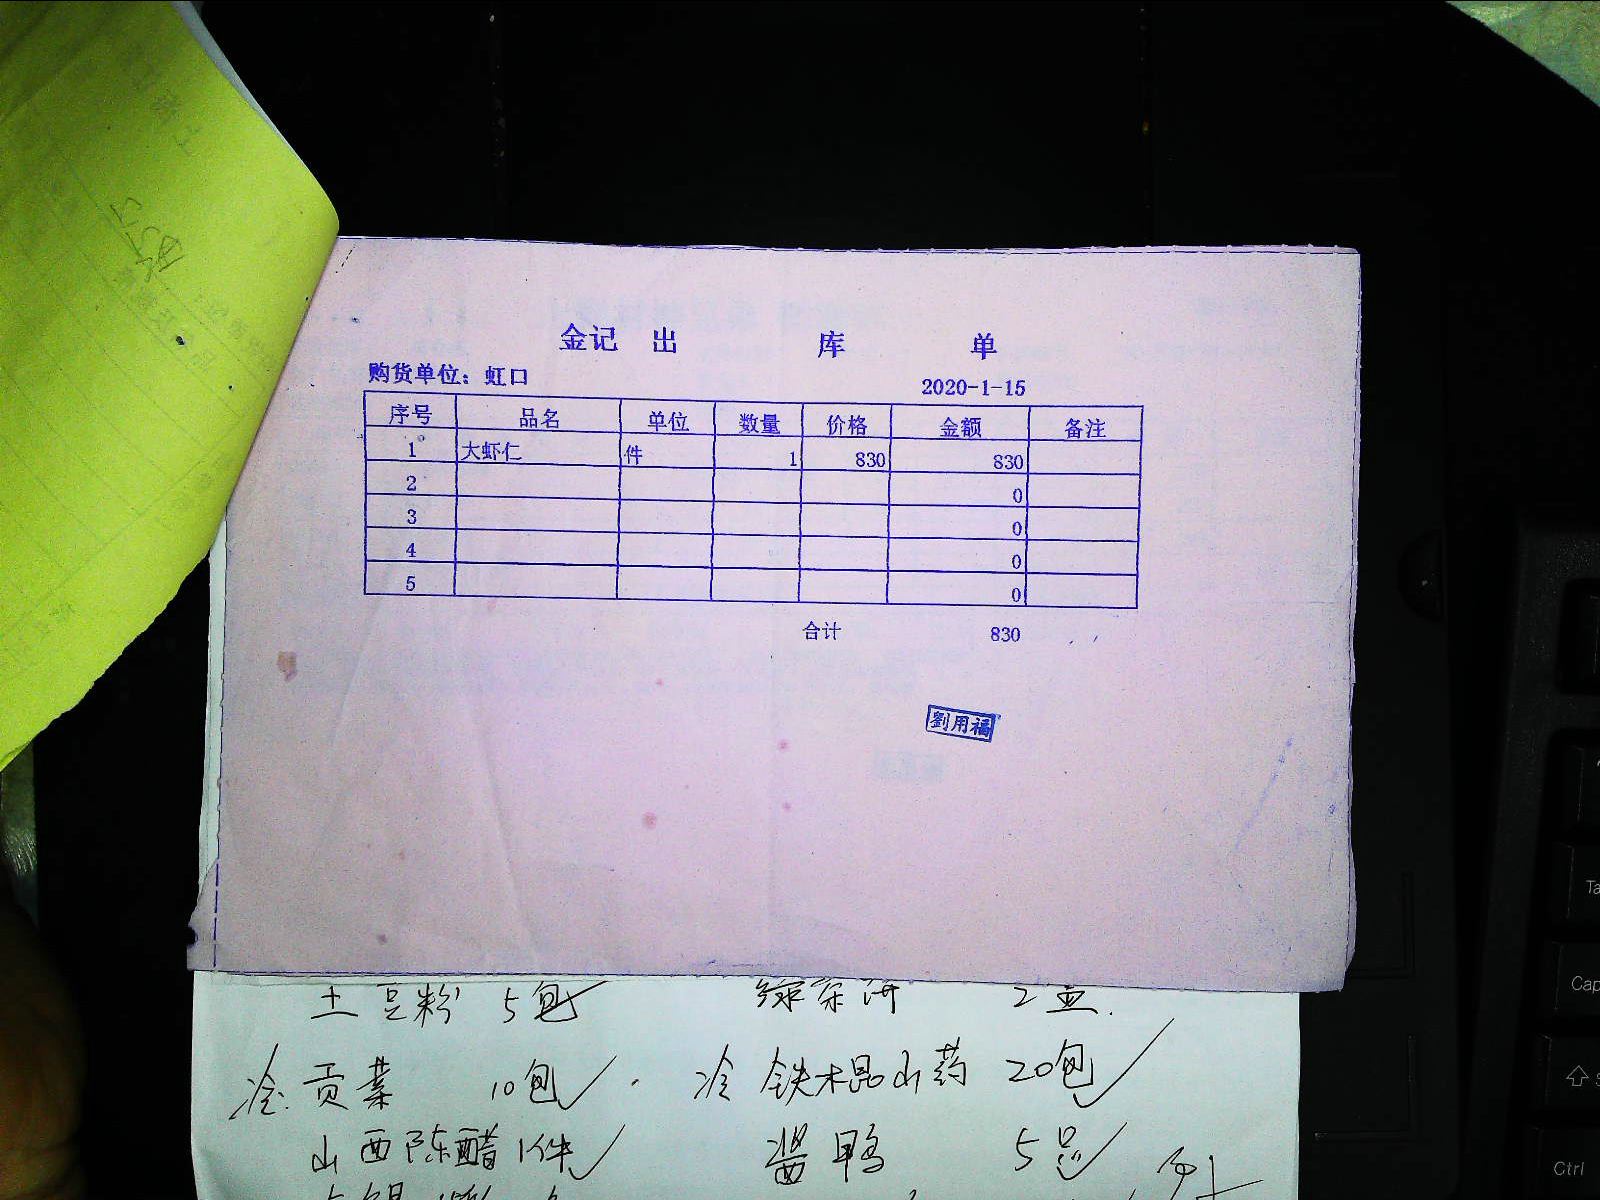 金记 出 库 单
购货单位：虹口 2020-1-15
序号 品名 单位 数量 价格 金额 备注
1 大虾仁 件 1 830 830
2 0
3 0
4 0
5 0
合计 830
劉用福
土豆粉 5包 绿茶饼 2盒.
冷.贡菜 10包 冷 铁棍山药 20包
山西陈醋 1件 酱鸭 5只
Ta
Cap
Ctrl